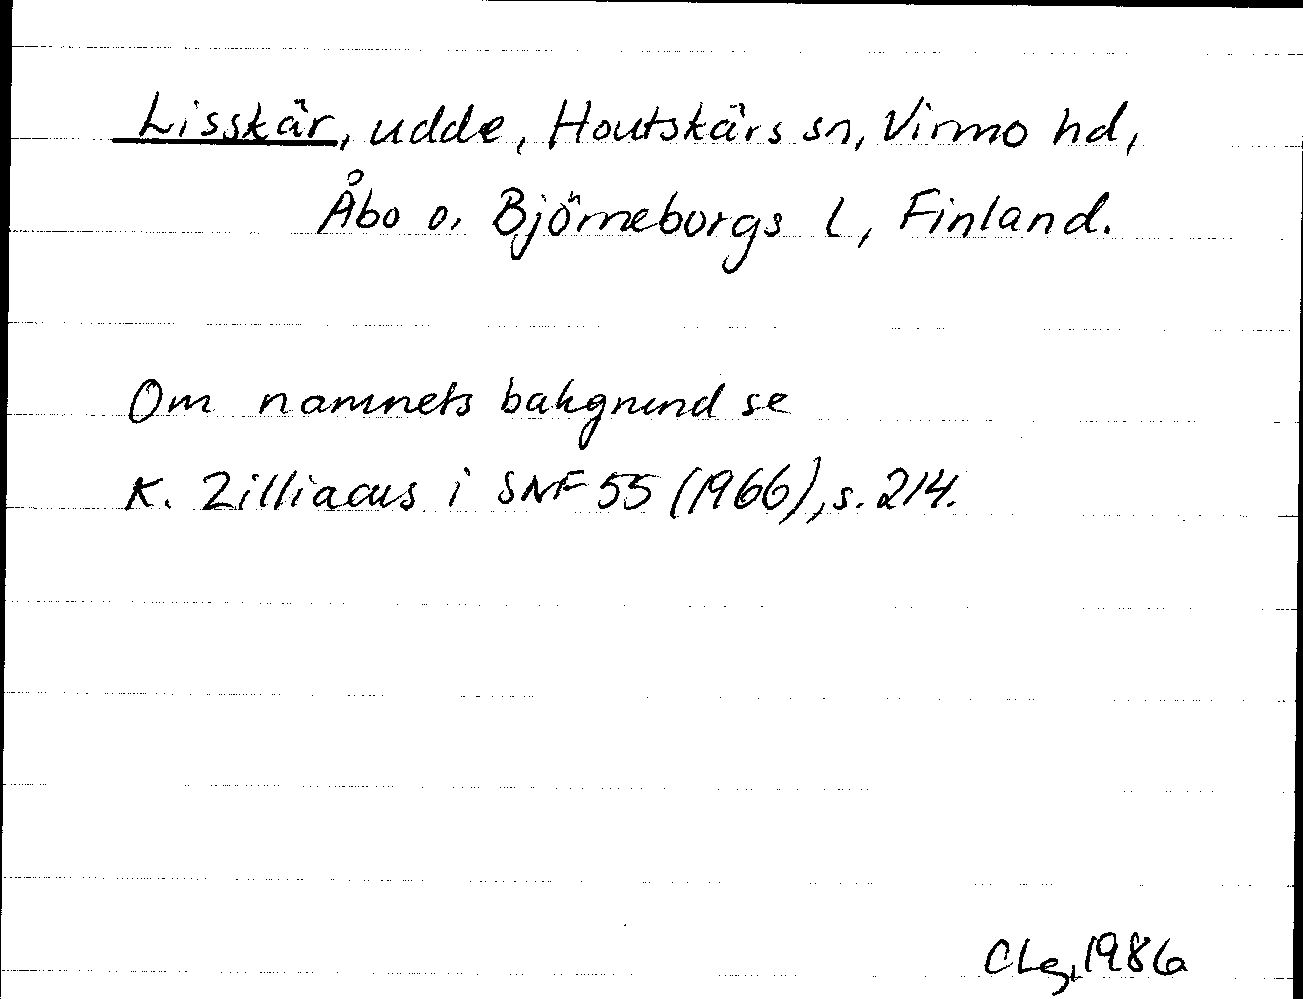 Lisskär, udde, Houtskärs sn, Virmo hd,
Åbo o. Björneborgs l, Finland.
Om namnets bakgrund se
K. Zilliacus i SNF 55 (1966), s. 214.
CLg, 1986